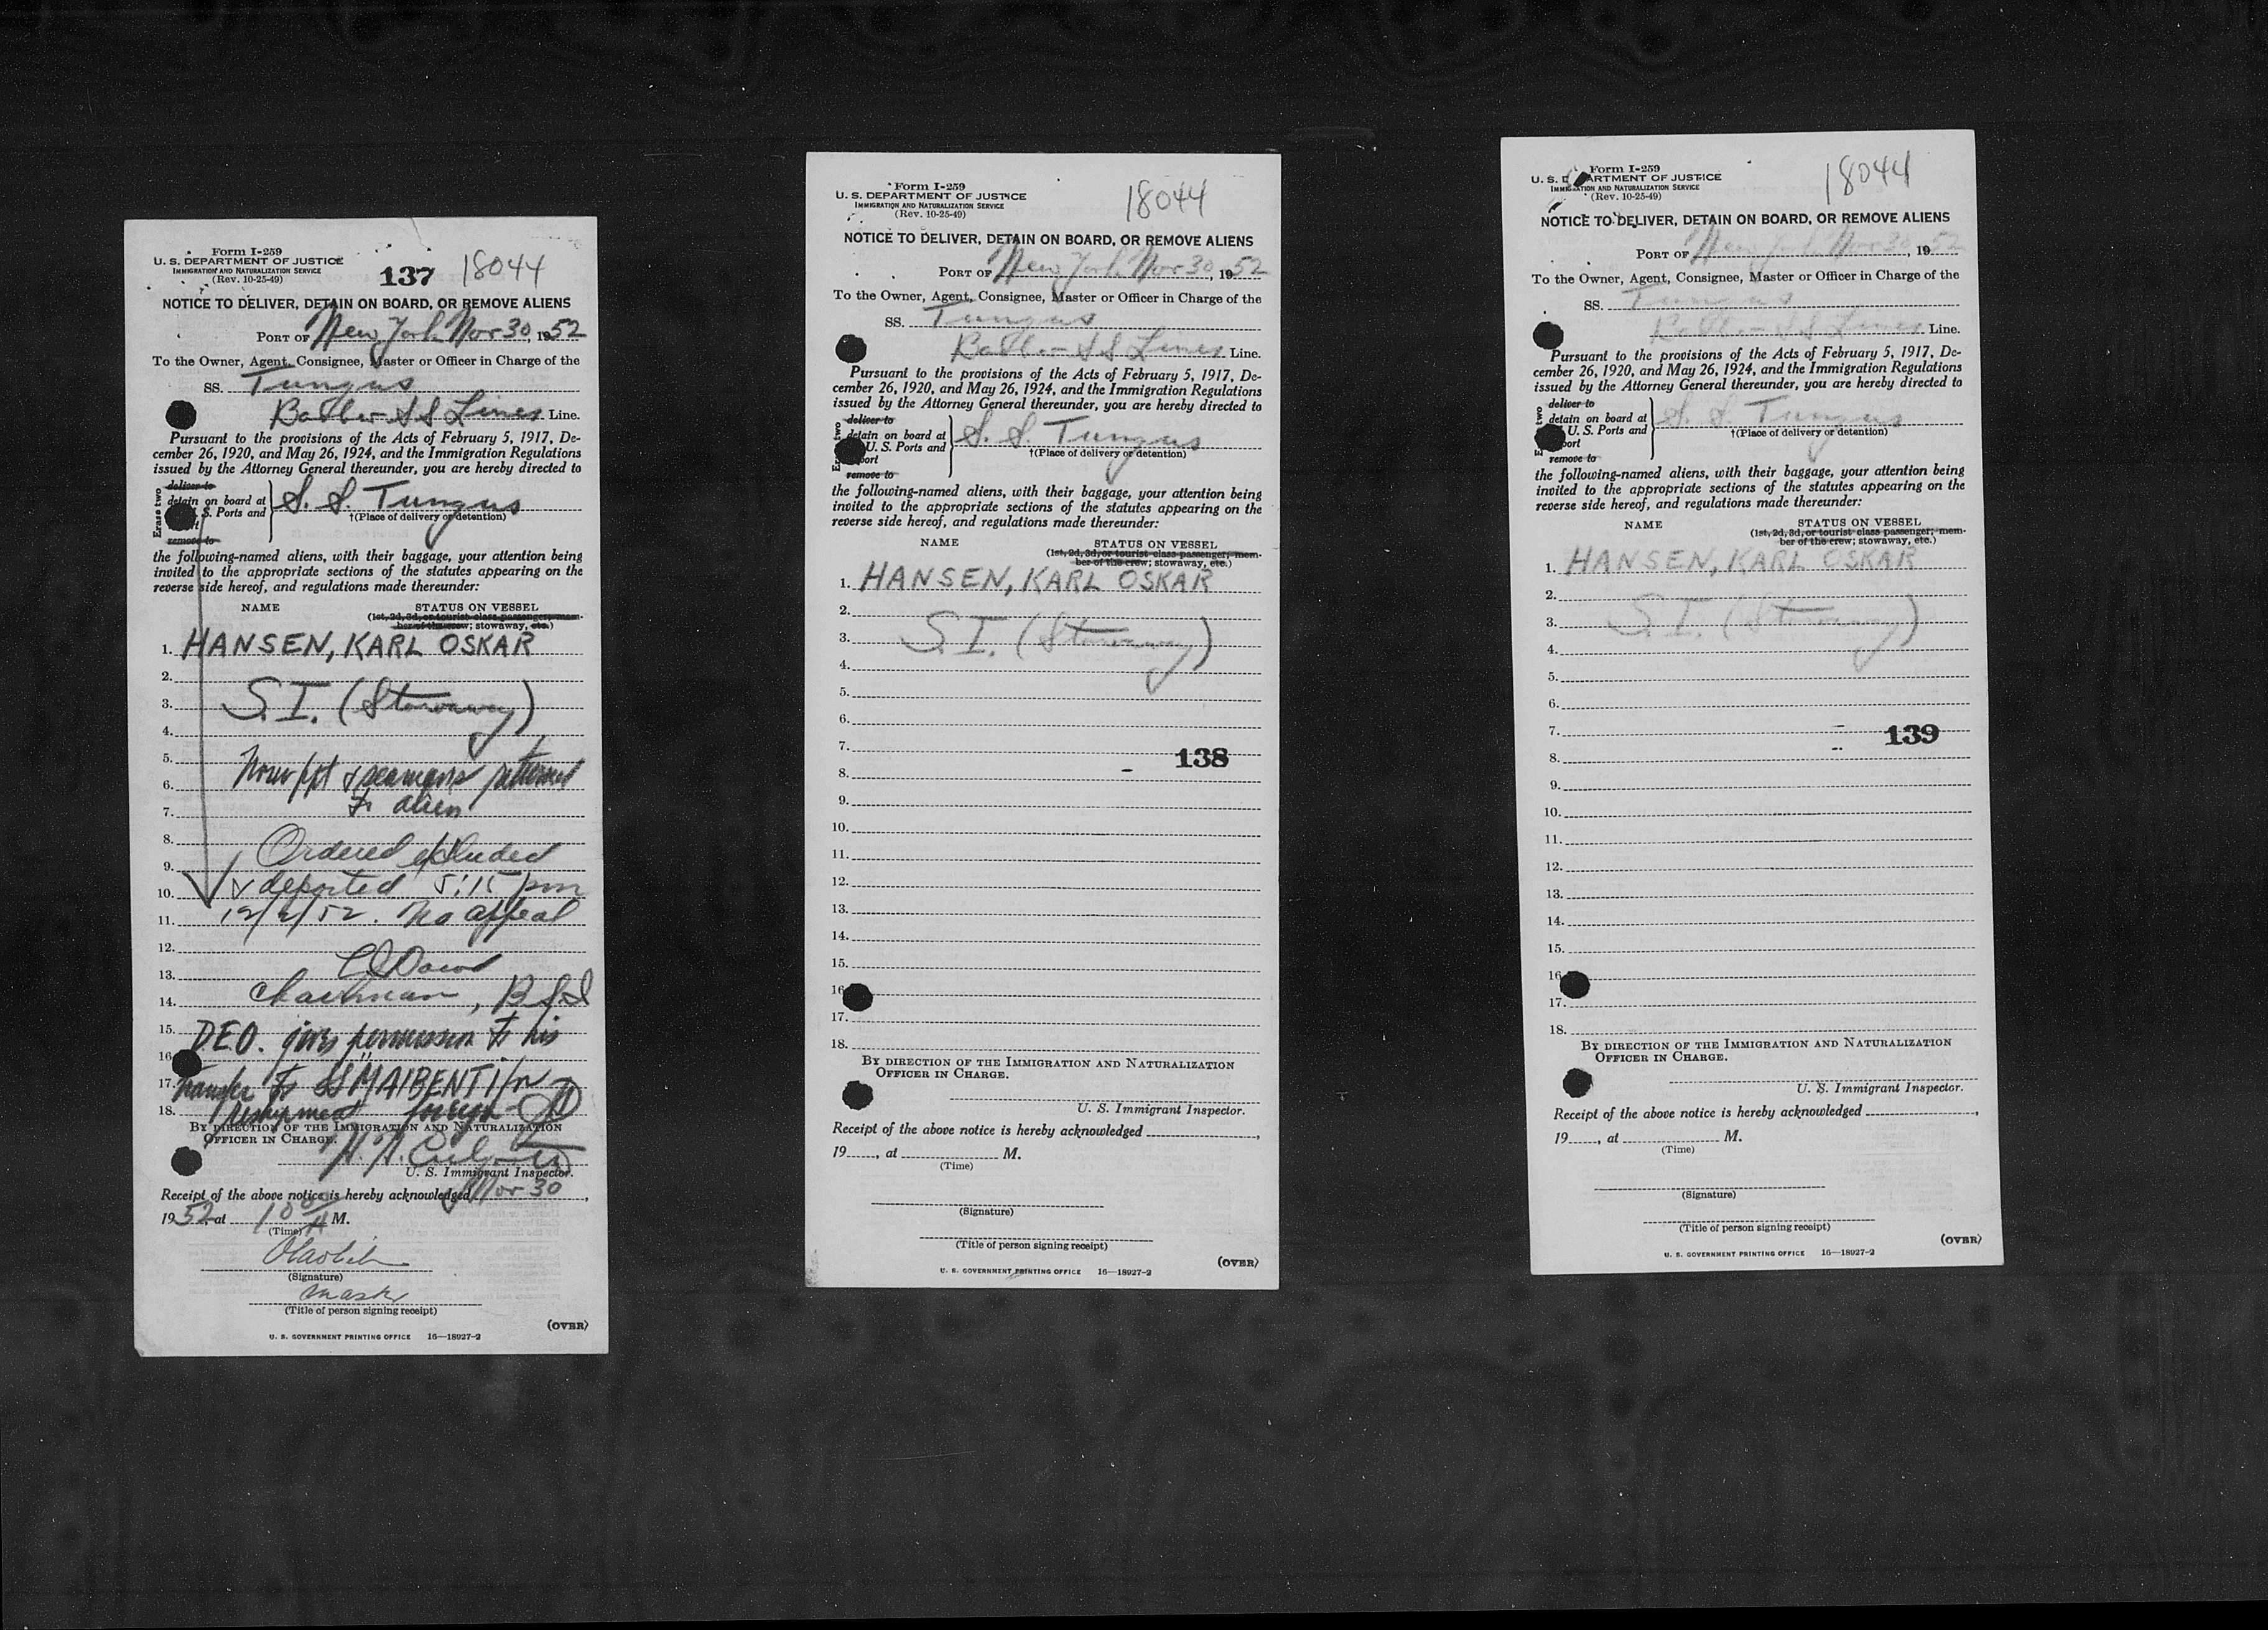 Form I-259
U. S. DEPARTMENT OF JUSTICE
IMMIGRATION AND NATURALIZATION SERVICE
(Rev. 10-25-49)
137 18044
NOTICE TO DELIVER, DETAIN ON BOARD, OR REMOVE ALIENS
PORT OF New York Nov 30, 1952
To the Owner, Agent, Consignee, Master or Officer in Charge of the
SS. Tungus
Barber S S Lines Line.
Pursuant to the provisions of the Acts of February 5, 1917, De-
cember 26, 1920, and May 26, 1924, and the Immigration Regulations
issued by the Attorney General thereunder, you are hereby directed to
Erase two
deliver to
detain on board at
S. Ports and
remove to
S. S. Tungus
†(Place of delivery or detention)
the following-named aliens, with their baggage, your attention being
invited to the appropriate sections of the statutes appearing on the
reverse side hereof, and regulations made thereunder:
NAME STATUS ON VESSEL
(1st, 2d, 3d, or tourist class passenger; mem-
ber of the crew; stowaway, etc.)
1. HANSEN, KARL OSKAR
2.
3. S.I. (Stowaway)
4.
5.
6. ppt & seamans returned
7. to alien
8. Ordered excluded
9.
10. & deported 5:15 pm
11. 12/2/52. No appeal
12.
13.
14. Chairman, B S I
15. D.E.O. gives permission to his
16.
17. transfer to SS MAIBENTI for
18. reshipment foreign
BY DIRECTION OF THE IMMIGRATION AND NATURALIZATION
OFFICER IN CHARGE.
U. S. Immigrant Inspector.
Receipt of the above notice is hereby acknowledged Nov 30,
1952 at 10 00 A M.
(Time)
(Signature)
Master
(Title of person signing receipt)
(OVER)
U. S. GOVERNMENT PRINTING OFFICE 16—18927-2
Form I-259
U. S. DEPARTMENT OF JUSTICE
IMMIGRATION AND NATURALIZATION SERVICE
(Rev. 10-25-49)
18044
NOTICE TO DELIVER, DETAIN ON BOARD, OR REMOVE ALIENS
PORT OF New York Nov 30, 1952
To the Owner, Agent, Consignee, Master or Officer in Charge of the
SS. Tungus
Barber S S Lines Line.
Pursuant to the provisions of the Acts of February 5, 1917, De-
cember 26, 1920, and May 26, 1924, and the Immigration Regulations
issued by the Attorney General thereunder, you are hereby directed to
deliver to
detain on board at
U. S. Ports and
port
remove to
S. S. Tungus
†(Place of delivery or detention)
the following-named aliens, with their baggage, your attention being
invited to the appropriate sections of the statutes appearing on the
reverse side hereof, and regulations made thereunder:
NAME STATUS ON VESSEL
(1st, 2d, 3d, or tourist class passenger; mem-
ber of the crew; stowaway, etc.)
1. HANSEN, KARL OSKAR
2.
3. S.I. (Stowaway)
4.
5.
6.
7. 138
8.
9.
10.
11.
12.
13.
14.
15.
16
17.
18.
BY DIRECTION OF THE IMMIGRATION AND NATURALIZATION
OFFICER IN CHARGE.
U. S. Immigrant Inspector.
Receipt of the above notice is hereby acknowledged ,
19 , at M.
(Time)
(Signature)
(Title of person signing receipt)
(OVER)
U. S. GOVERNMENT PRINTING OFFICE 16—18927-2
Form I-259
U. S. DEPARTMENT OF JUSTICE
IMMIGRATION AND NATURALIZATION SERVICE
(Rev. 10-25-49)
18044
NOTICE TO DELIVER, DETAIN ON BOARD, OR REMOVE ALIENS
PORT OF New York Nov 30, 1952
To the Owner, Agent, Consignee, Master or Officer in Charge of the
SS. Tungus
Barber S S Lines Line.
Pursuant to the provisions of the Acts of February 5, 1917, De-
cember 26, 1920, and May 26, 1924, and the Immigration Regulations
issued by the Attorney General thereunder, you are hereby directed to
deliver to
detain on board at
U. S. Ports and
port
remove to
S. S. Tungus
†(Place of delivery or detention)
the following-named aliens, with their baggage, your attention being
invited to the appropriate sections of the statutes appearing on the
reverse side hereof, and regulations made thereunder:
NAME STATUS ON VESSEL
(1st, 2d, 3d, or tourist class passenger; mem-
ber of the crew; stowaway, etc.)
1. HANSEN, KARL OSKAR
2.
3. S.I. (Stowaway)
4.
5.
6.
7. 139
8.
9.
10.
11.
12.
13.
14.
15.
16
17.
18.
BY DIRECTION OF THE IMMIGRATION AND NATURALIZATION
OFFICER IN CHARGE.
U. S. Immigrant Inspector.
Receipt of the above notice is hereby acknowledged ,
19 , at M.
(Time)
(Signature)
(Title of person signing receipt)
(OVER)
U. S. GOVERNMENT PRINTING OFFICE 16—18927-2